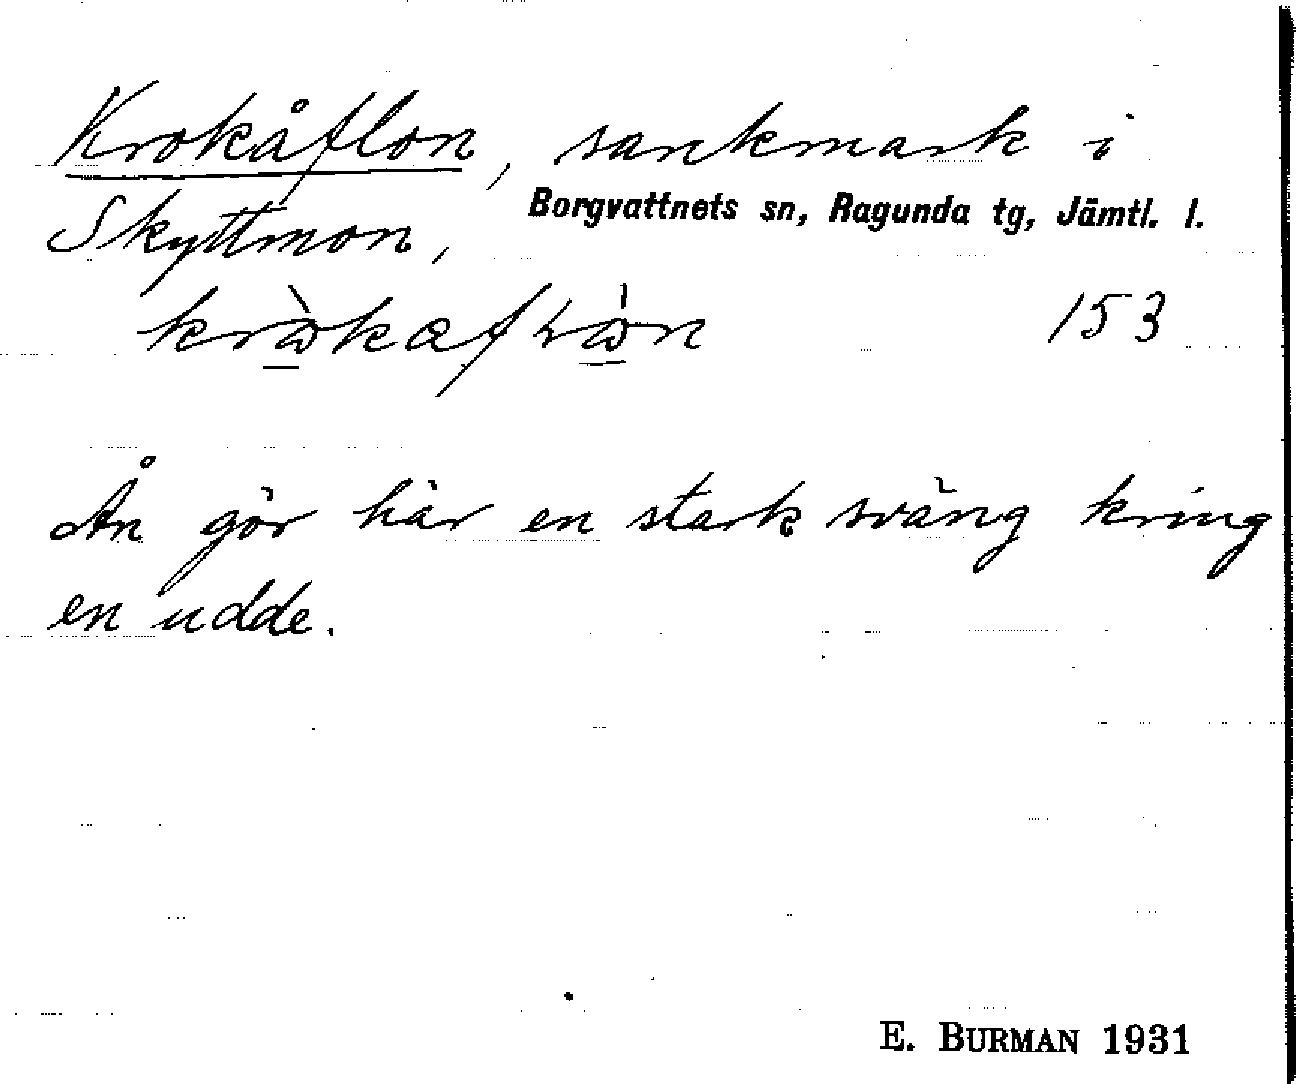 Krokåflon, sankmark i
Skyttmon, Borgvattnets sn, Ragunda tg, Jämtl. l.
153
Ån gör här en stark sväng kring
en udde.
E. BURMAN 1931